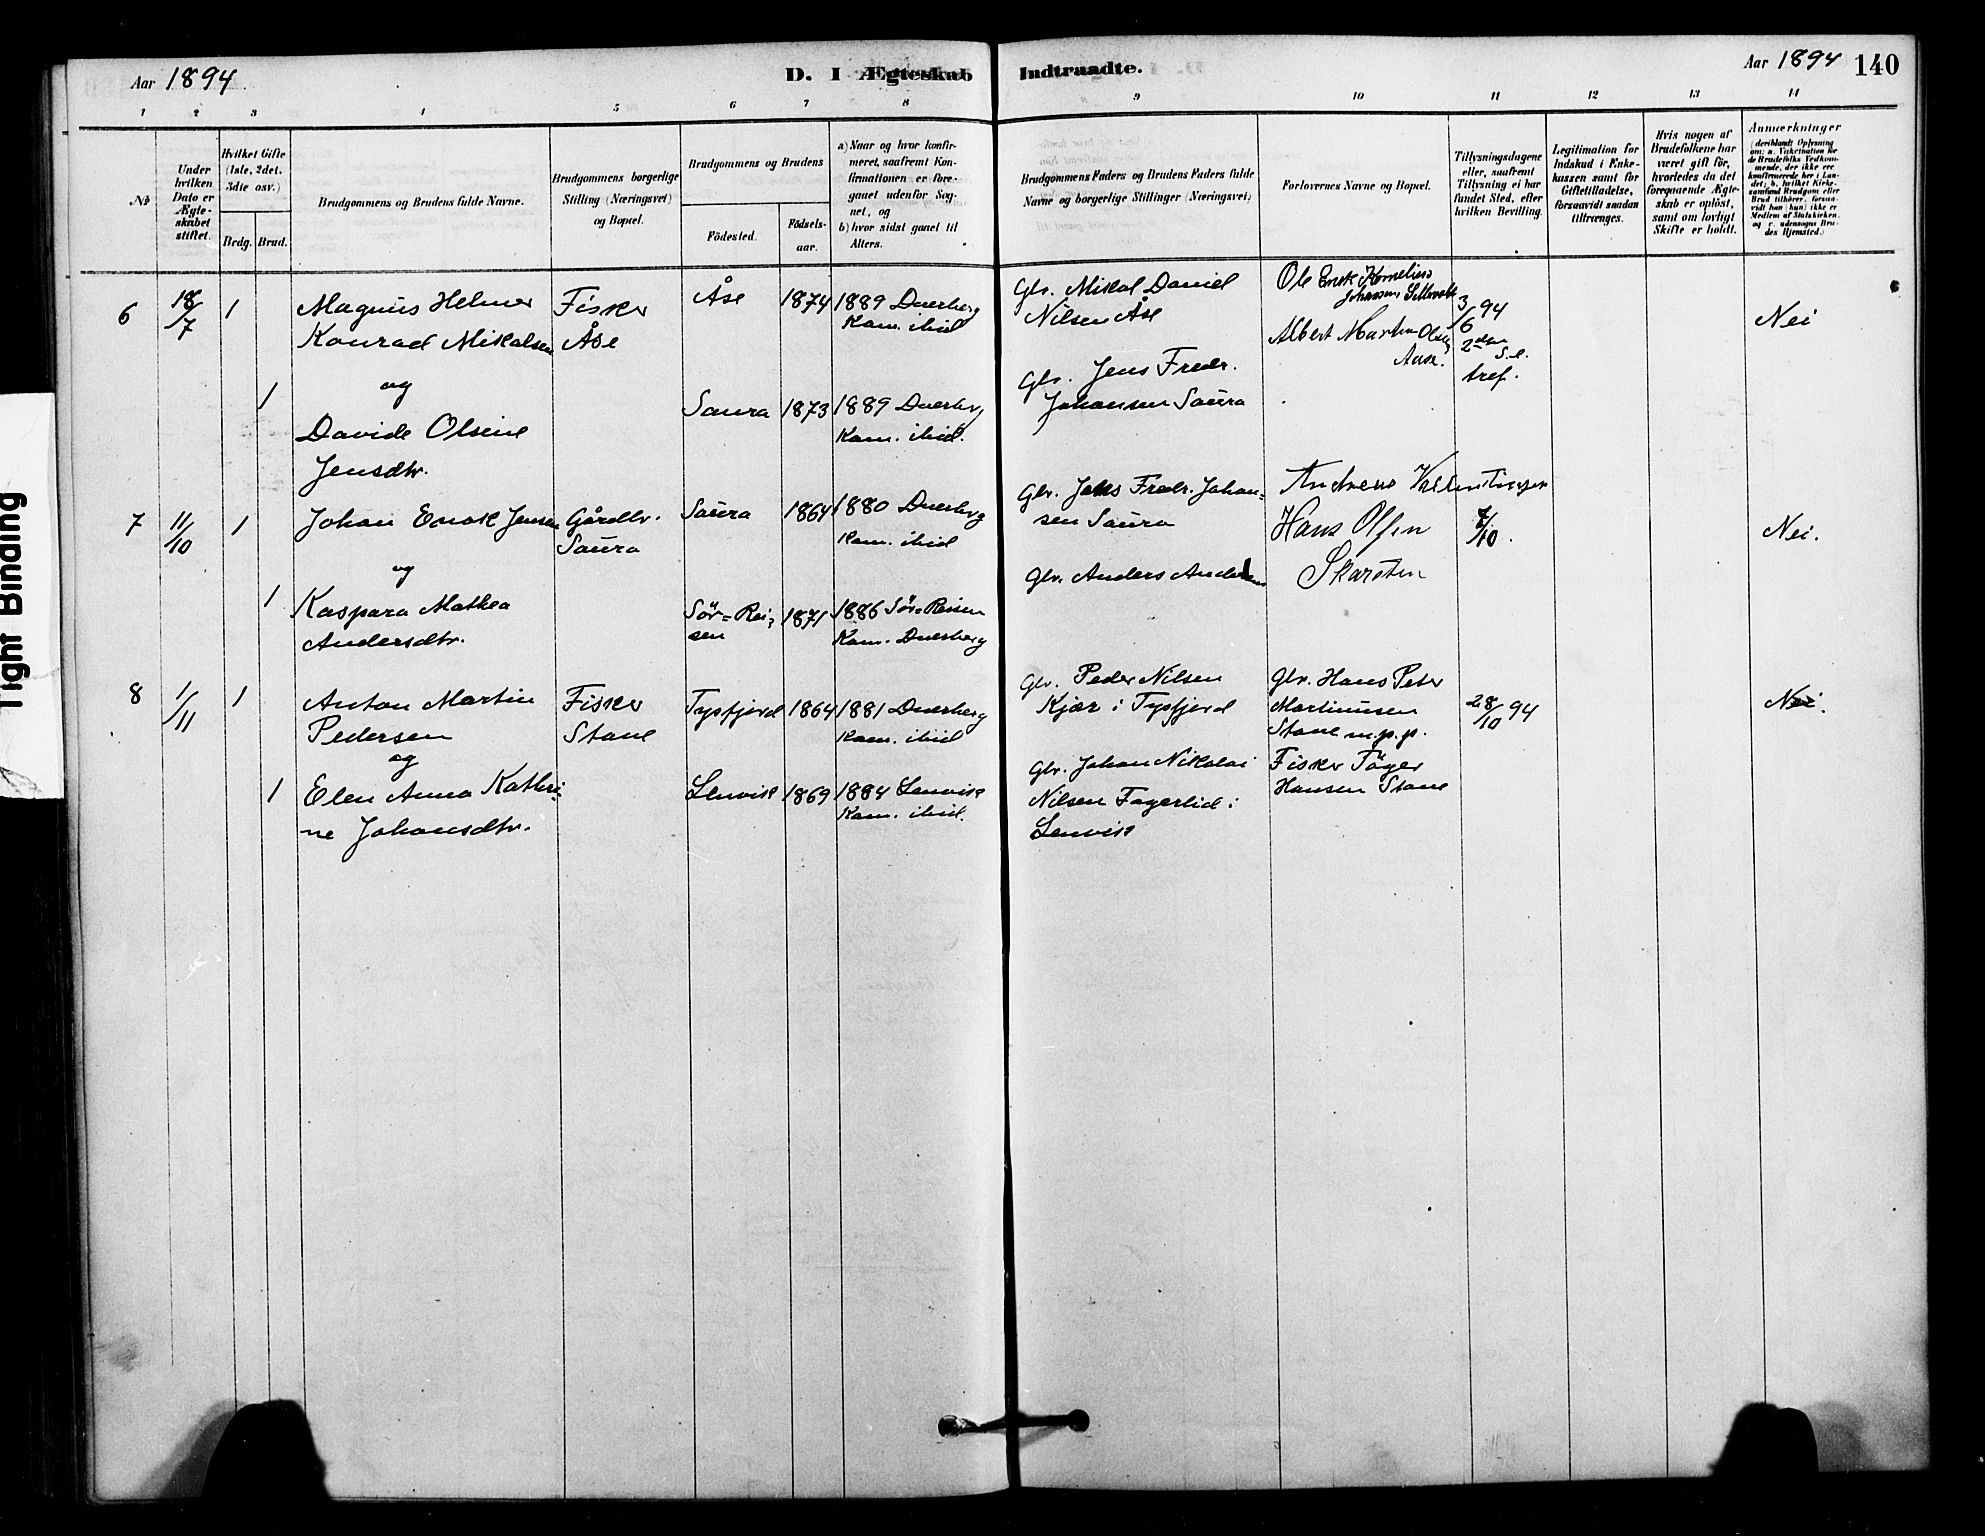 Aar 1894
D. I Ægteskab Indtraadte.
Aar 1894 140
1 2 3 4 5 6 7 8 9 10 11 12 13 14
№
Under hvilken Dato er Ægteskabet stiftet.
Hvilket Gifte (1ste, 2det, 3die osv.)
Brdg. Brud.
Brudgommens og Brudens fulde Navne.
Brudgommens borgerlige Stilling (Næringsvei) og Bopæl.
Brudgommens og Brudens
Fødested. Fødsels-aar.
a) Naar og hvor konfirmeret, saafremt Konfirmationen er foregaaet udenfor Sognet, og
b) hvor sidst gaaet til Alters.
Brudgommens Faders og Brudens Faders fulde Navne og borgerlige Stillinger (Næringsvei)
Forlovernes Navne og Bopæl.
Tillysningsdagene eller, saafremt Tillysning ei har fundet Sted, efter hvilken Bevilling.
Legitimation for Indskud i Enkekassen samt for Giftetilladelse, forsaavidt saadan tiltrænges.
Hvis nogen af Brudefolkene har været gift før, hvorledes da det foregaaende Ægteskab er opløst, samt om lovligt Skifte er holdt.
Anmærkninger (deriblandt Oplysning om: a. Vakcination for de Brudefolks Vedkommende, der ikke ere konfirmerede her i Landet; b. hvilket Kirkesamfund Brudgom eller Brud tilhører, forsaavidt han (hun) ikke er Medlem af Statskirken, og c. udensogns Brudes Hjemsted.)
6 18/7 1
Magnus Helmer
Konrad Mikalsen
Fisker
Åse
Åse 1874
1889 Dverberg
Kom. ibid
Glv. Mikal Daniel
Nilsen Åse
Ole Enok Kornelius
Johansen
Albert Martin Olsen
3/6 94
2den S. e.
tref.
Nei
og
1
Davide Olsine
Jensdtr.
Saura 1873
1889 Dverbrg
Kom. ibid.
Glv. Jens Fredr.
Johansen Saura
7 11/10 1
Johan Enok Jensen
Gårdbr.
Saura
Saura 1864
1880 Dverbrg
Kom. ibid
Glv. Jens Fredr. Johan-
sen Saura
Andreas
Hans Olsen
Skarsten
7/10.
Nei.
og
1
Kaspara Mathea
Andersdtr.
Sør-Rei-
sen
1871
1886 Sør-Reisen
Kom. Dverberg
Glv. Anders Andersen
8 1/11 1
Anton Martin
Pedersen
Fisker
Stave
Tysfjord 1864
1881 Dverberg
Kom. ibid
Glv. Peder Nilsen
Kjær i Tysfjord
Glv. Hans Peter
Martinusen
Stave m.p.p.
28/10 94
Nei.
og
1
Elen Anna Kathri-
ne Johansdtr.
Lenvik 1869
1884 Lenvik
Kom. ibid.
Glv. Johan Nikolai
Nilsen Fagerlid i
Lenvik
Fisker Töger
Hansen Stave
Tight Binding